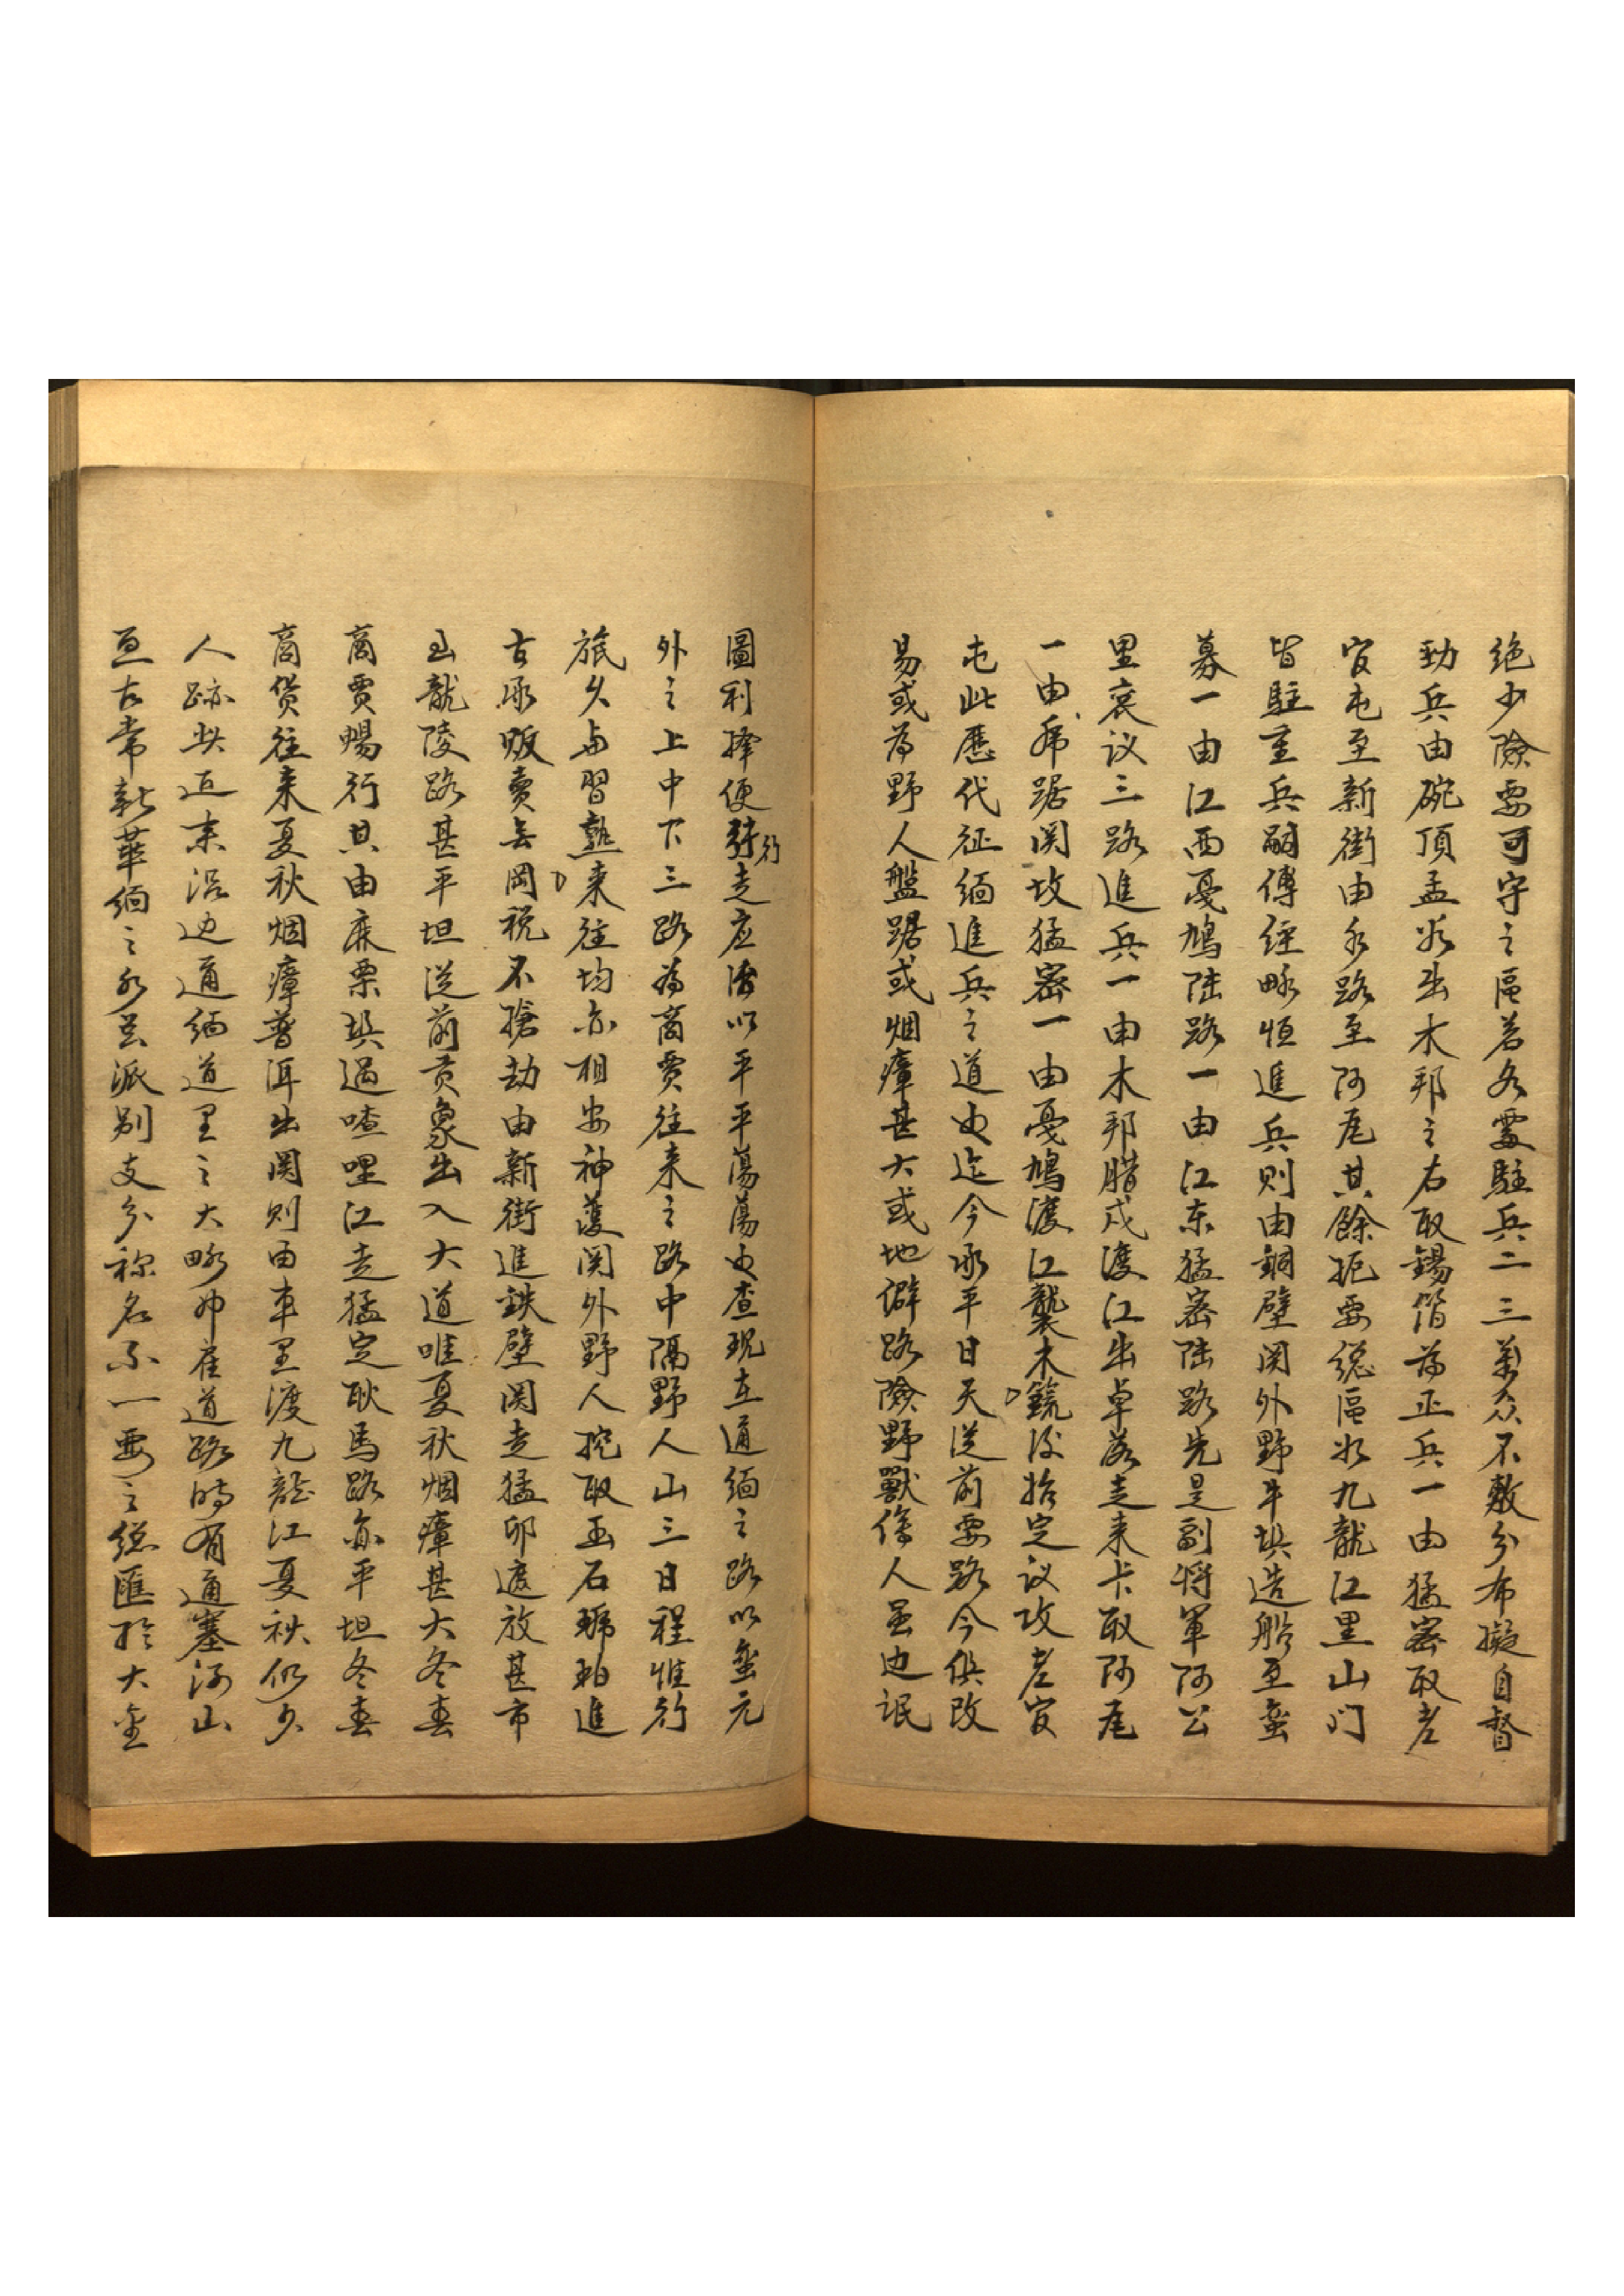 绝少險要可守之區若各要駐兵二三萬众不敷分布擬自督
勁兵由碗頂孟水出木邦之右取錫箔為正兵一由猛密取老
官屯至新街由水路至阿瓦其餘扼要總區水九龍江里山门
皆駐重兵嗣傅經畧恒進兵則由銅壁関外野牛埧造船至蛮
募一由江西戞鳩陆路一由江东猛密陆路先是副将軍阿公
里衮议三路進兵一由木邦腊戍渡江出卓落走来卡取阿瓦
一由虎踞関攻猛密一由戞鳩渡江襲木鏡後抬定议攻老官
屯此歷代征缅進兵之道也迄今承平日久從前要路今俱改
易或為野人盤踞或烟瘴甚大或地僻路險野獸傷人虽边氓
圖利擇便行走应以平平蕩蕩也查現在通缅之路以蛮元
外之上中下三路為商賈往来之路中隔野人山三日程惟行
旅久与習熟来往均亦相安神護関外野人挖取玉石琥珀進
古永販賣無岡税不搶劫由新街進鉄壁関走猛卯遮放甚市
至龍陵路甚平坦從前贡象出入大道唯夏秋烟瘴甚大冬春
商賈暢行其由麻栗埧過喳哩江走猛定耿馬路亦平坦冬春
商货往来夏秋烟瘴普洱出関則由車里渡九龍江夏秋仍少
人跡此迤南沿边通缅道里之大畧也雀道路時有通塞河山
亘古常新華缅之水其派别支分称名不一要之總匯於大金